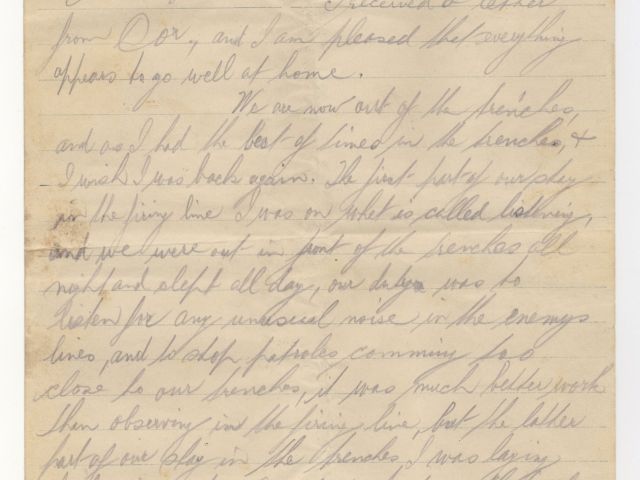 I received a letter
from Dor, and I am pleased that everything
appears to go well at home.
We are now out of the trenches,
and as I had the best of times in the trenches, &
I wish I was back again. The first part of our stay
in the firing line I was on what is called listening,
and we were out in front of the trenches all
night and slept all day, our duty was to
listen for any unusual noise in the enemys
lines, and to stop patroles comming too
close to our trenches, it was much better work
then observing in the firing line, but the latter
part of our stay in the trenches I was